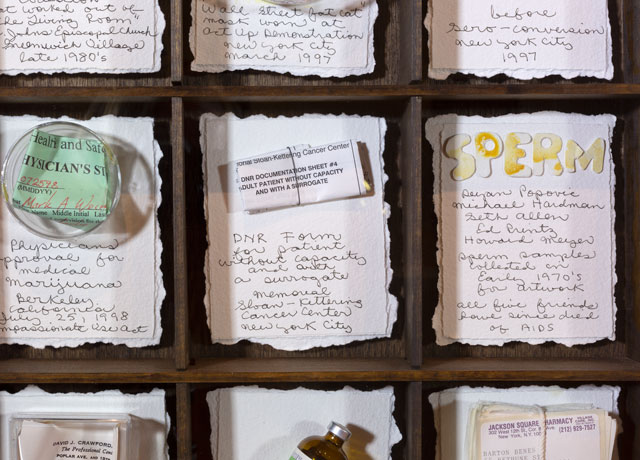 "The Living Room"
St. Johns Episcopal Church
Greenwich Village
late 1980's
"Wall Street fat cat"
mask worn at
Act Up Demonstration
New York City
March 1997
before
sero-conversion
New York City
1997
Health and Safe
HYSICIAN'S ST
072598
(MMDDYY)
Mark A
Name Middle Initial
Physicians
approval for
medical
Marijuana
Berkeley,
California
July 25, 1998
Compassionate Use Act
orial Sloan-Kettering Cancer Center
DNR DOCUMENTATION SHEET #4
ADULT PATIENT WITHOUT CAPACITY
AND WITH A SURROGATE
DNR Form
for patient
without capacity
and with
a surrogate
Memorial
Sloan-Kettering
Cancer Center
New York City
SPERM
Dejan Popovic
Michael Hardman
Seth Allen
Ed Runtz
Howard Meyer
sperm samples
collected in
Early 1970's
for artwork
all five friends
have since died
of AIDS
DAVID J. CRAWFORD,
The Professional
POPLAR AVE.
JACKSON SQUARE PHARMACY
New York, N.Y. (212) 929-7527
BARTON BENES